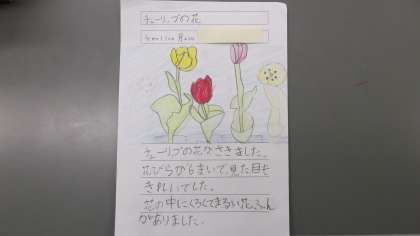 チューリップの花
チューリップの花がさきました。
花びらがうまいて、見た目も
きれいでした。
花の中にくろくてまるい花ふん
がありました。